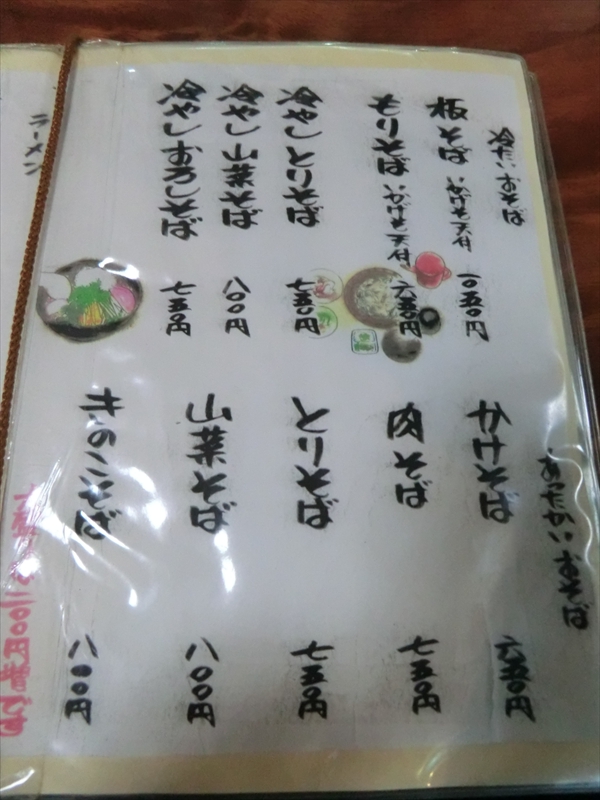 冷たいおそば
板そば いかげそ天付 一〇五〇円
もりそば いかげそ天付 六五〇円
冷やしとりそば 七五〇円
冷やし山菜そば 八〇〇円
冷やしおろしそば 七五〇円
あったかいおそば
かけそば 六五〇円
肉そば 七五〇円
とりそば 七五〇円
山菜そば 八〇〇円
きのこそば 八〇〇円
ラーメン